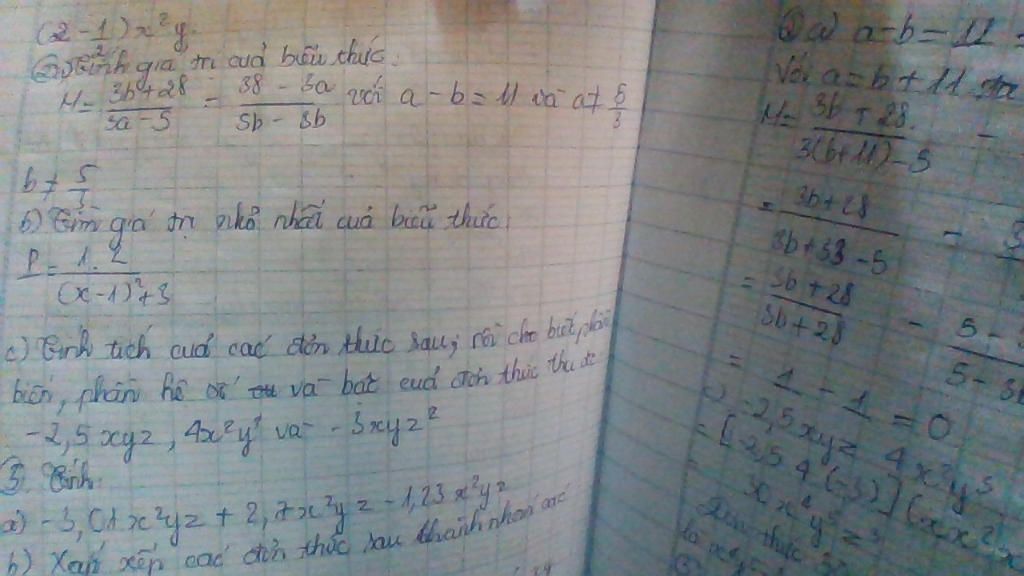 (2-1)x²y.
② a) Tính giá trị cuả biểu thức:
M = (3b+28)/(3a-5) - (38-3a)/(5b-3b) với a-b=11 và a≠5/3
b≠5/3
b) Tìm giá trị nhỏ nhất cuả biểu thức:
P = 1.2/((x-1)²+3)
c) Tính tích cuả các đơn thức sau, rồi cho biết phần
biến, phần hệ số và bật cuả đơn thức thu đc
-2,5xyz, 4x²y³ và -3xyz²
③. Tính:
a) -3,01x²yz + 2,7x²yz - 1,23x²yz
b) Xắp xếp các đơn thức sau thành nhóm các
② a) a-b=11
Với a=b+11
M = (3b+28)/(3(b+11)-5) -
= (3b+28)/(3b+33-5) -
= (3b+28)/(3b+28) -
= 1 - 1 = 0
c) -2,5xyz 4x²y³
= [-2,5 4 (-3)] (x x²
Đơn thức 30